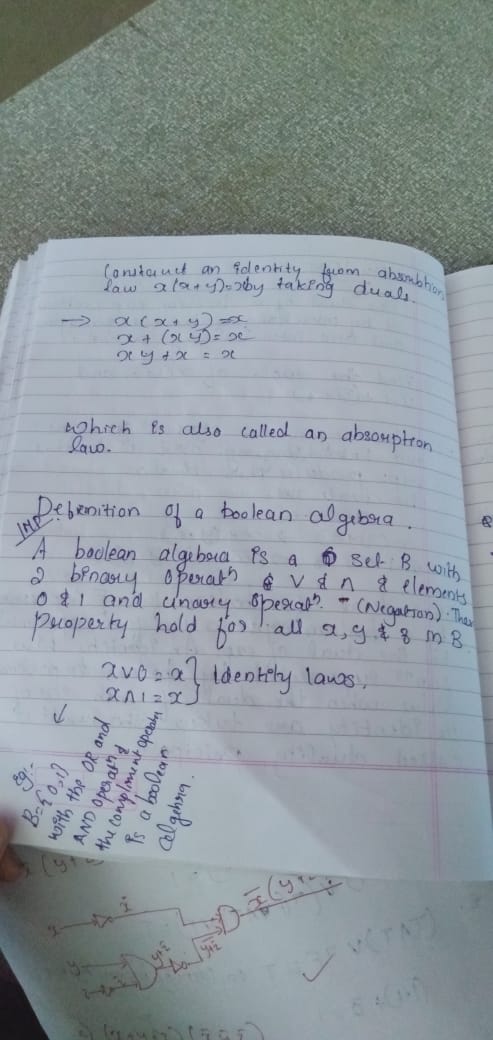 Construct an identity from absorbtion
law x(x+y)=x by taking duals.
→ x(x+y)=x
x+(xy)=x
xy+x = x
which is also called an absorption
law.
IMP
Definition of a boolean algebra.
A boolean algebra is a set B with
2 binary operatn ∨ & ∧ & elements
0 & 1 and unary operatn. - (Negation). The
property hold for all x, y & z in B.
x∨0 = x } Identity laws.
x∧1 = x
Eg:-
B={0,1}
with the OR and
AND operatn &
the compliment operatn
is a boolean
algebra.